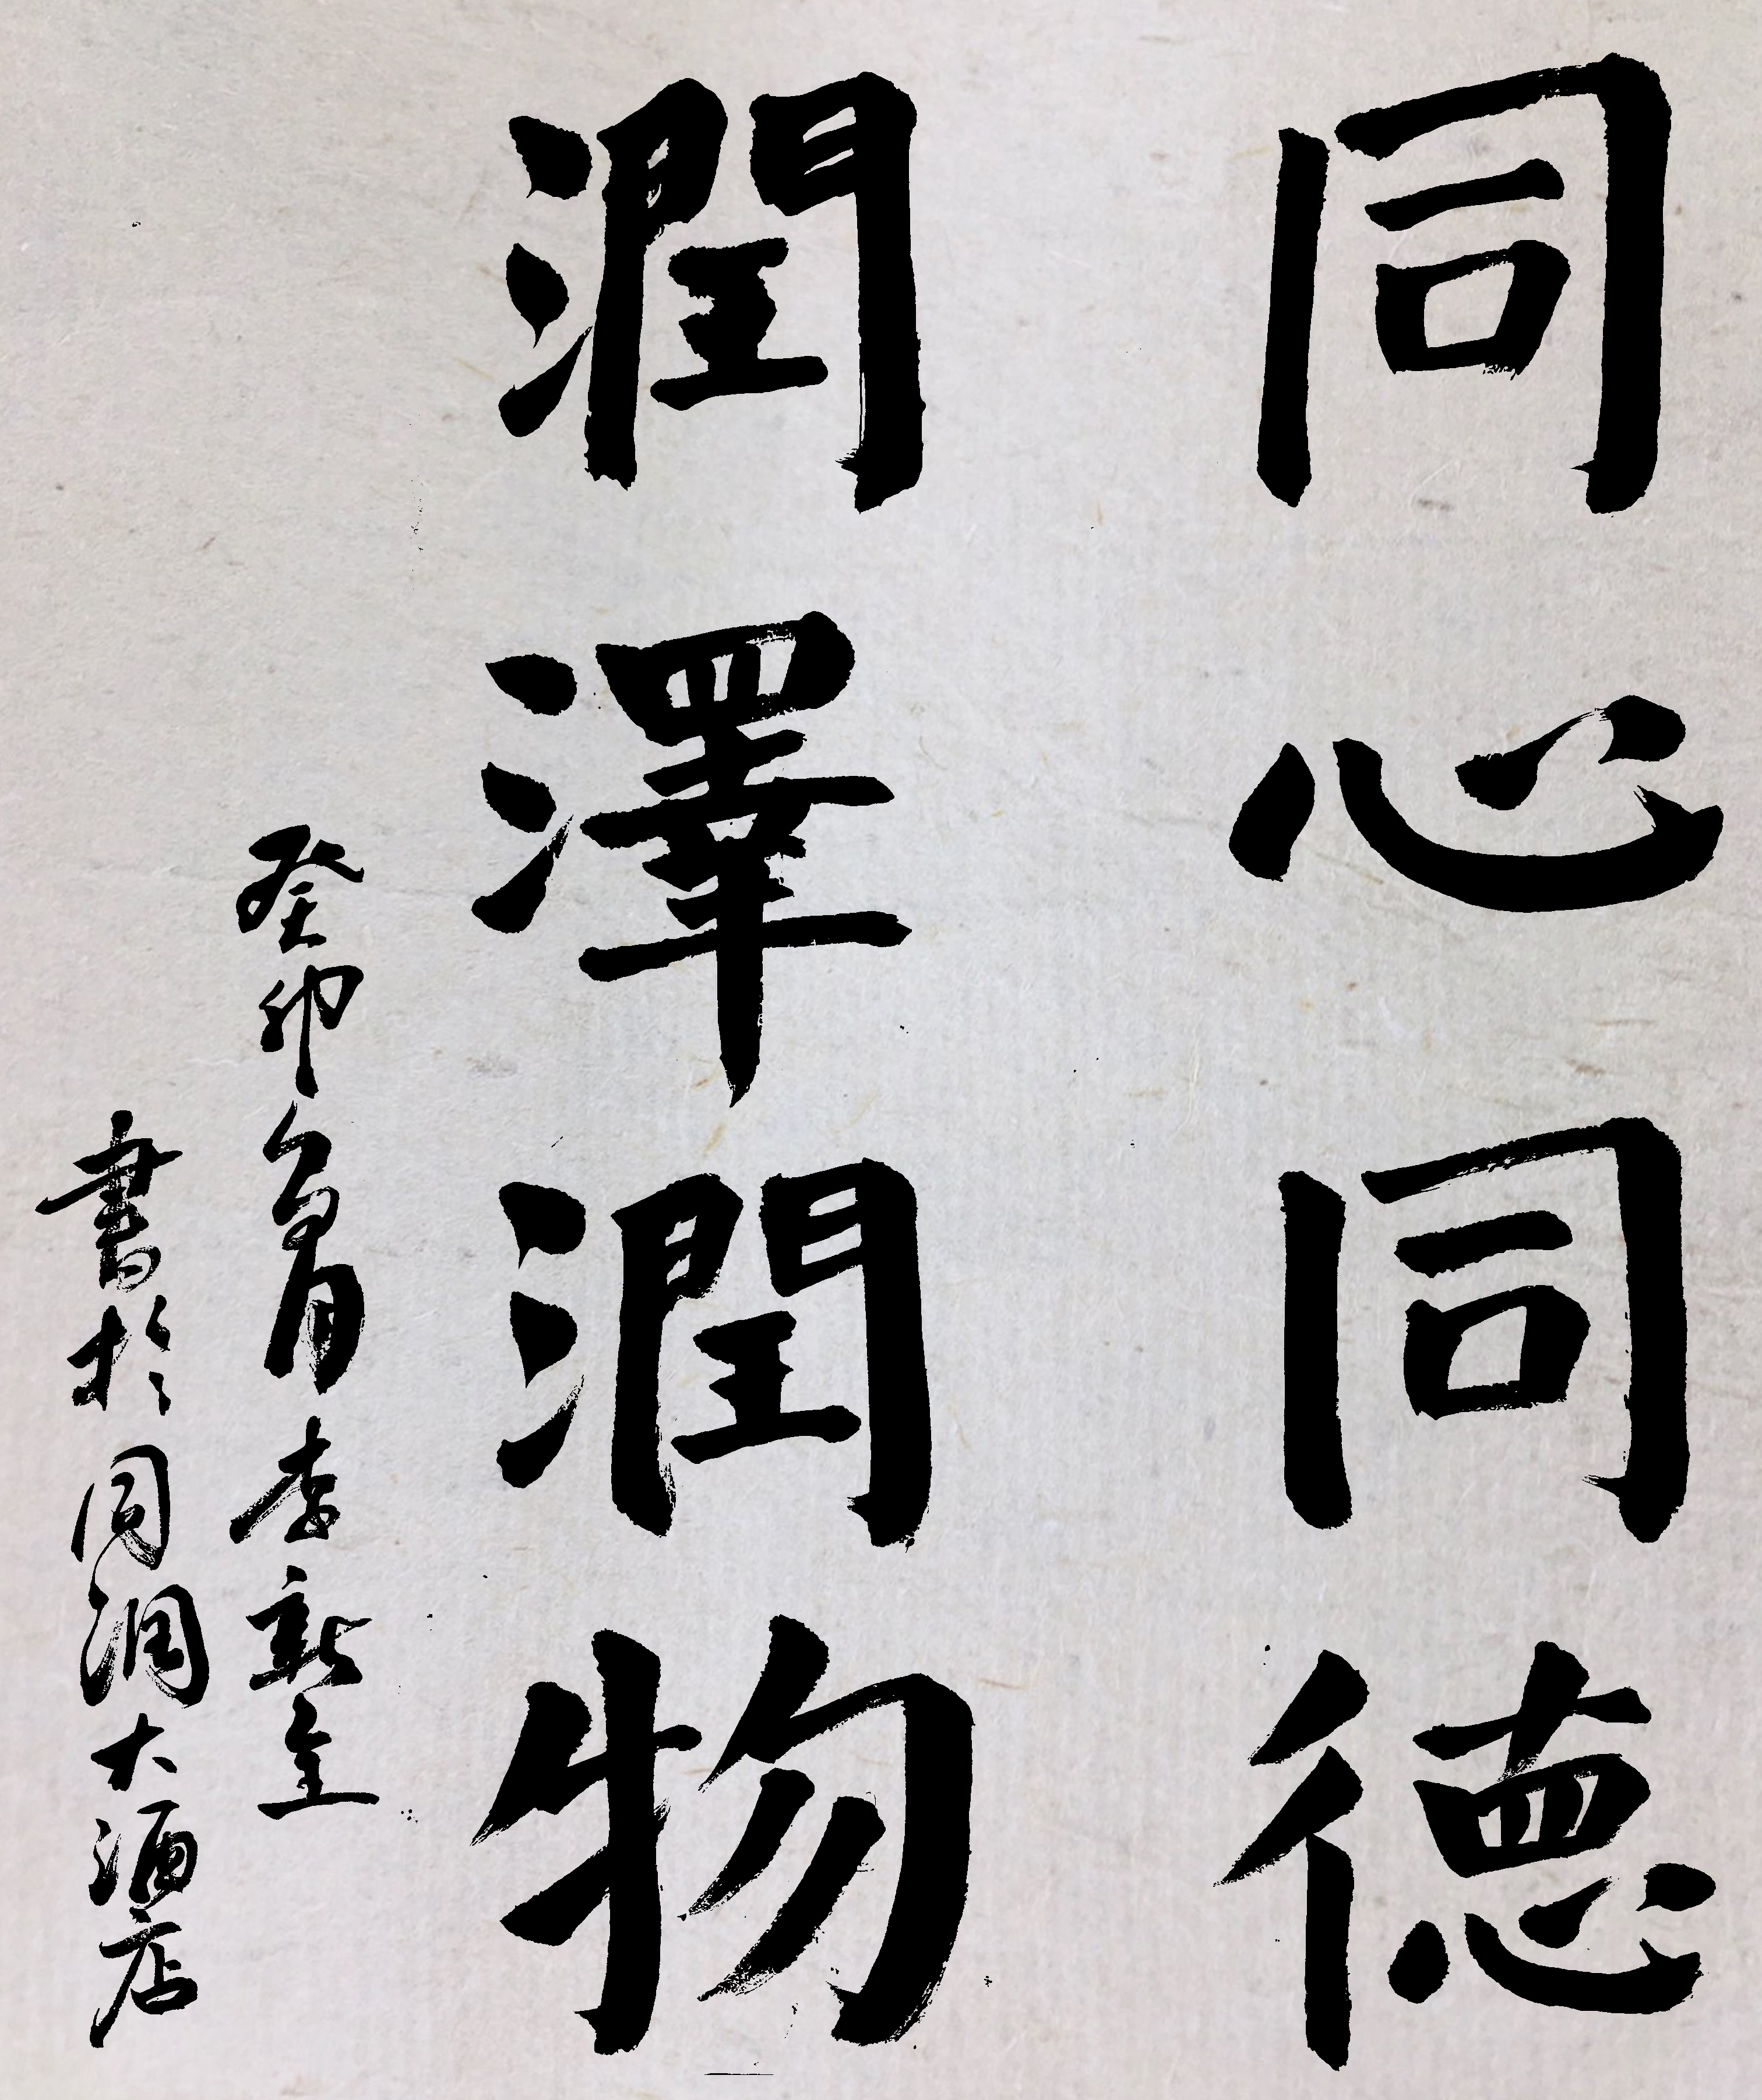 同心同徳
潤澤潤物
癸卯夏月李新全
書於同潤大酒店